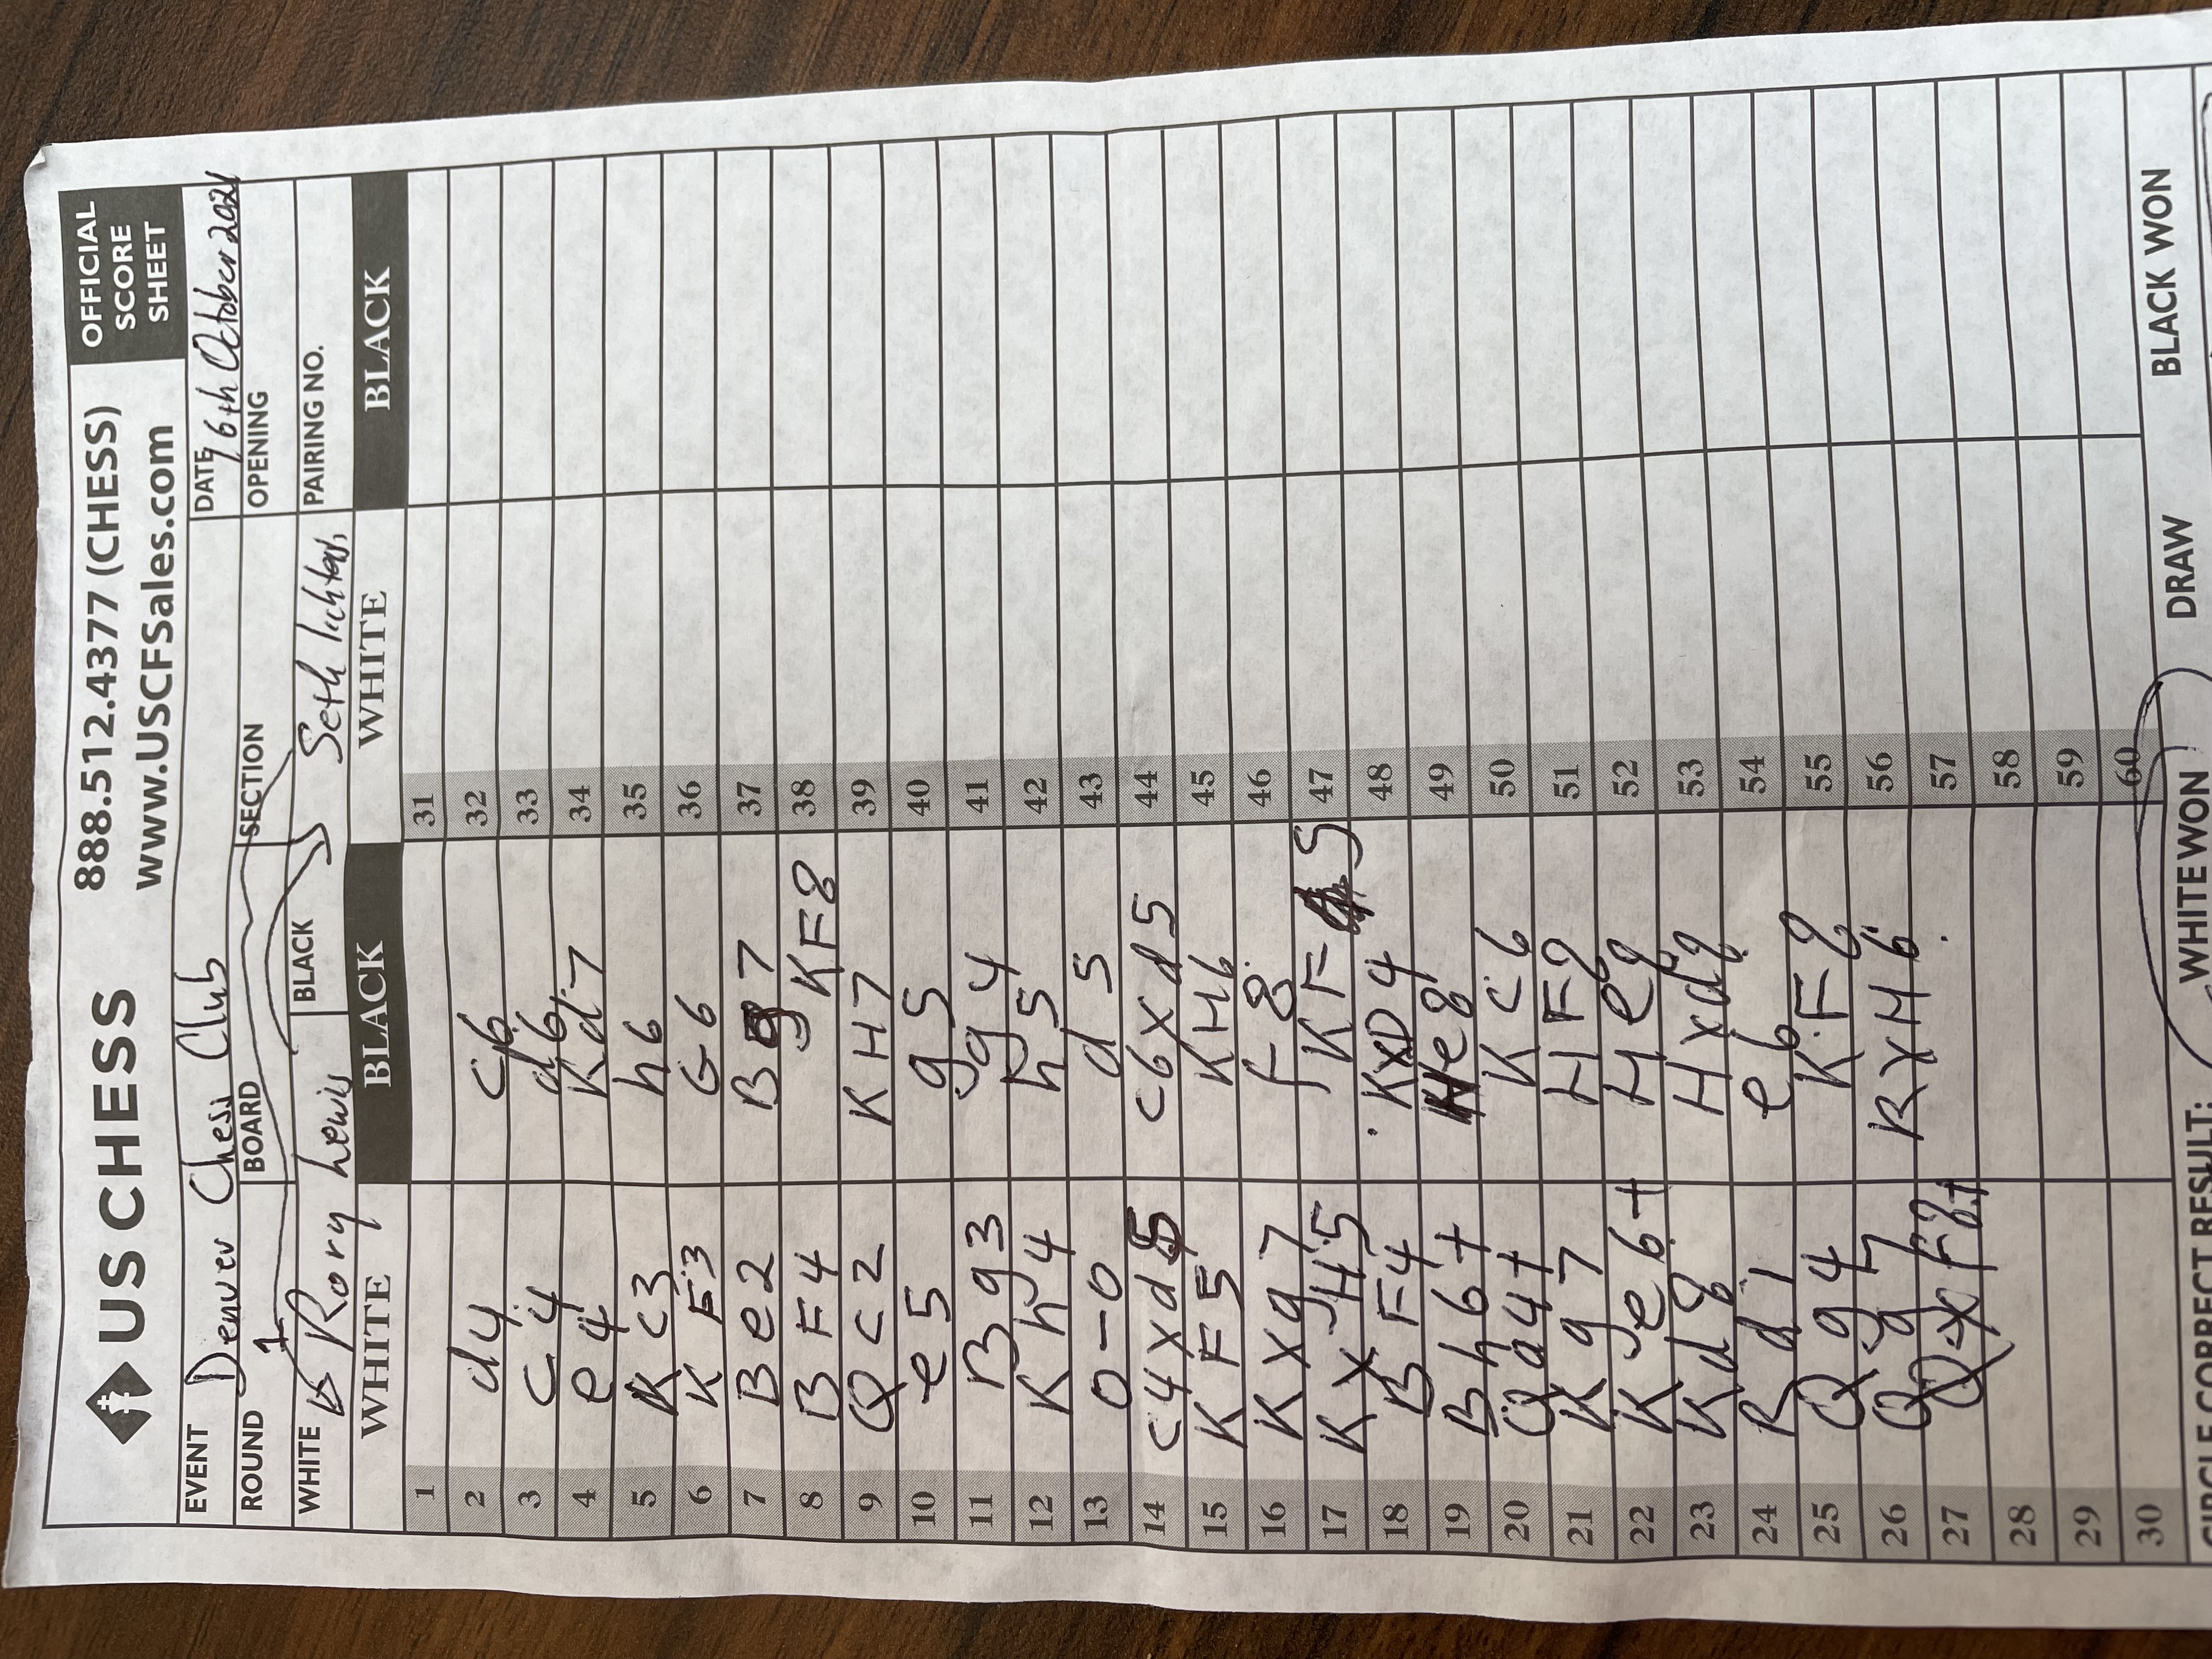 US CHESS 888.512.4377 (CHESS) OFFICIAL
www.USCFSales.com SCORE
SHEET
EVENT Denver Chess Club DATE 6th October 2021
ROUND 1 BOARD SECTION OPENING
WHITE Rory Lewis BLACK Seth PAIRING NO.
WHITE BLACK WHITE BLACK
1 31
2 d4 c6 32
3 c4 d6 33
4 e4 Kd7 34
5 Kc3 h6 35
6 KF3 G6 36
7 Be2 Bg7 37
8 BF4 KF8 38
9 Qc2 KH7 39
10 e5 g5 40
11 Bg3 g4 41
12 Kh4 h5 42
13 0-0 d5 43
14 c4xd5 c6xd5 44
15 KF5 KH6 45
16 Kxg7 F8 46
17 KxH5 KF5 47
18 BF4 KxD4 48
19 Bh6+ He8 49
20 Qa4+ Kc6 50
21 Kg7 HF8 51
22 Ke6+ He8 52
23 Kd8 Hxd8 53
24 Rd1 e6 54
25 Qg4 KF8 55
26 Qg7 RxH6 56
27 QxF8+ 57
28 58
29 59
30 60
CIRCLE CORRECT RESULT: WHITE WON DRAW BLACK WON